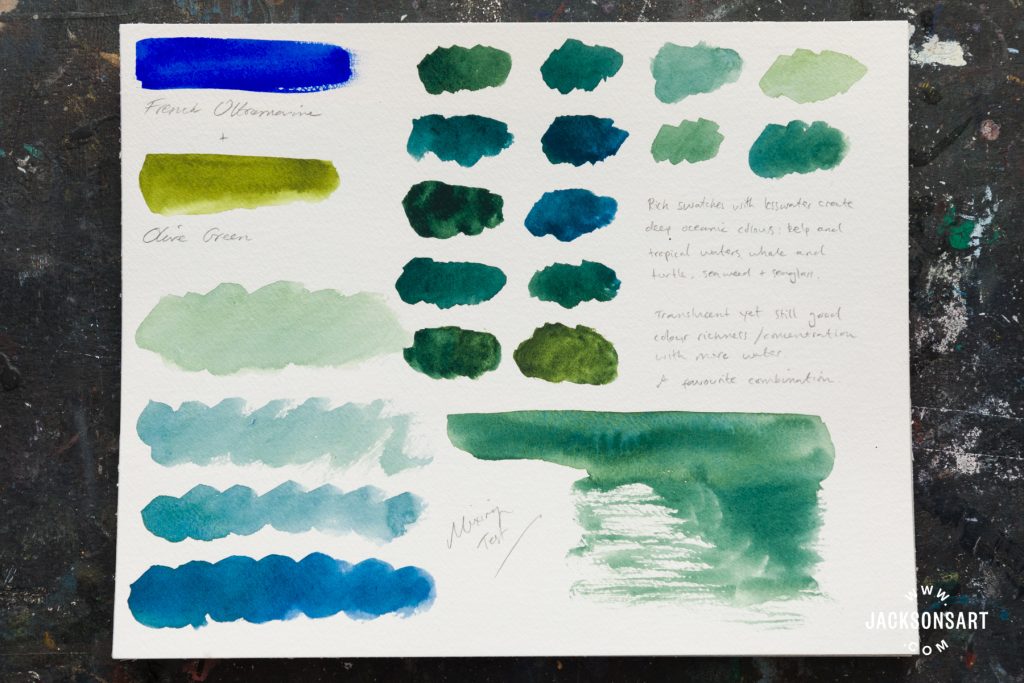 French Ultramarine
+
Olive Green
Rich swatches with less water create
deep oceanic colours: kelp and
tropical waters, whale and
turtle, seaweed + seaglass.
Translucent yet still good
colour richness/concentration
with more water
A favourite combination
Mixing
Test
WWW.
JACKSONSART
.COM